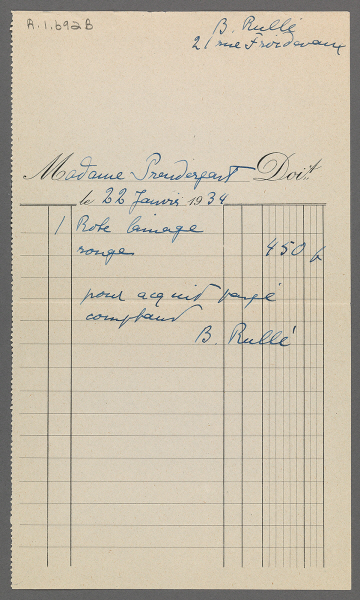 A.1.692B
B. Rullé
21 rue Froidevaux
Madame Prendergast Doit
le 22 Janvier 1934
1 Robe lainage
rouge 450 f
pour acquit payé
comptant
B. Rullé